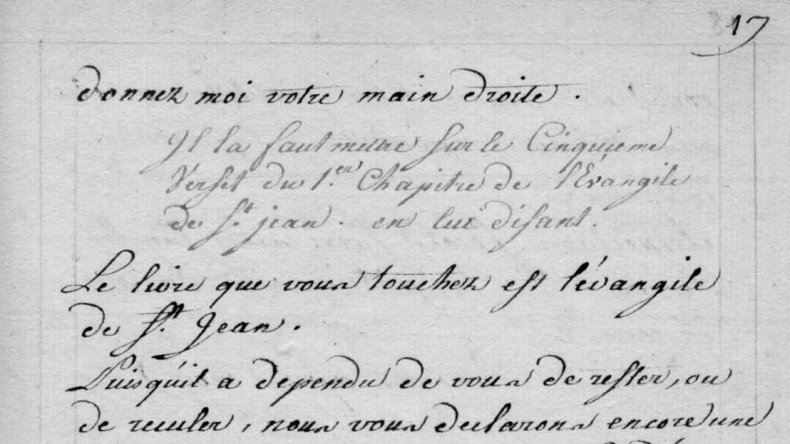 17
donnez moi votre main droite.
Il la faut mettre sur le Cinquieme
Verset du 1.er Chapitre de l'Évangile
de St. jean. en lui disant.
Le livre que vous touchez est l'évangile
de St. Jean.
Puisqu'il a dependu de vous de rester, ou
de reculer, nous vous declarons encore une